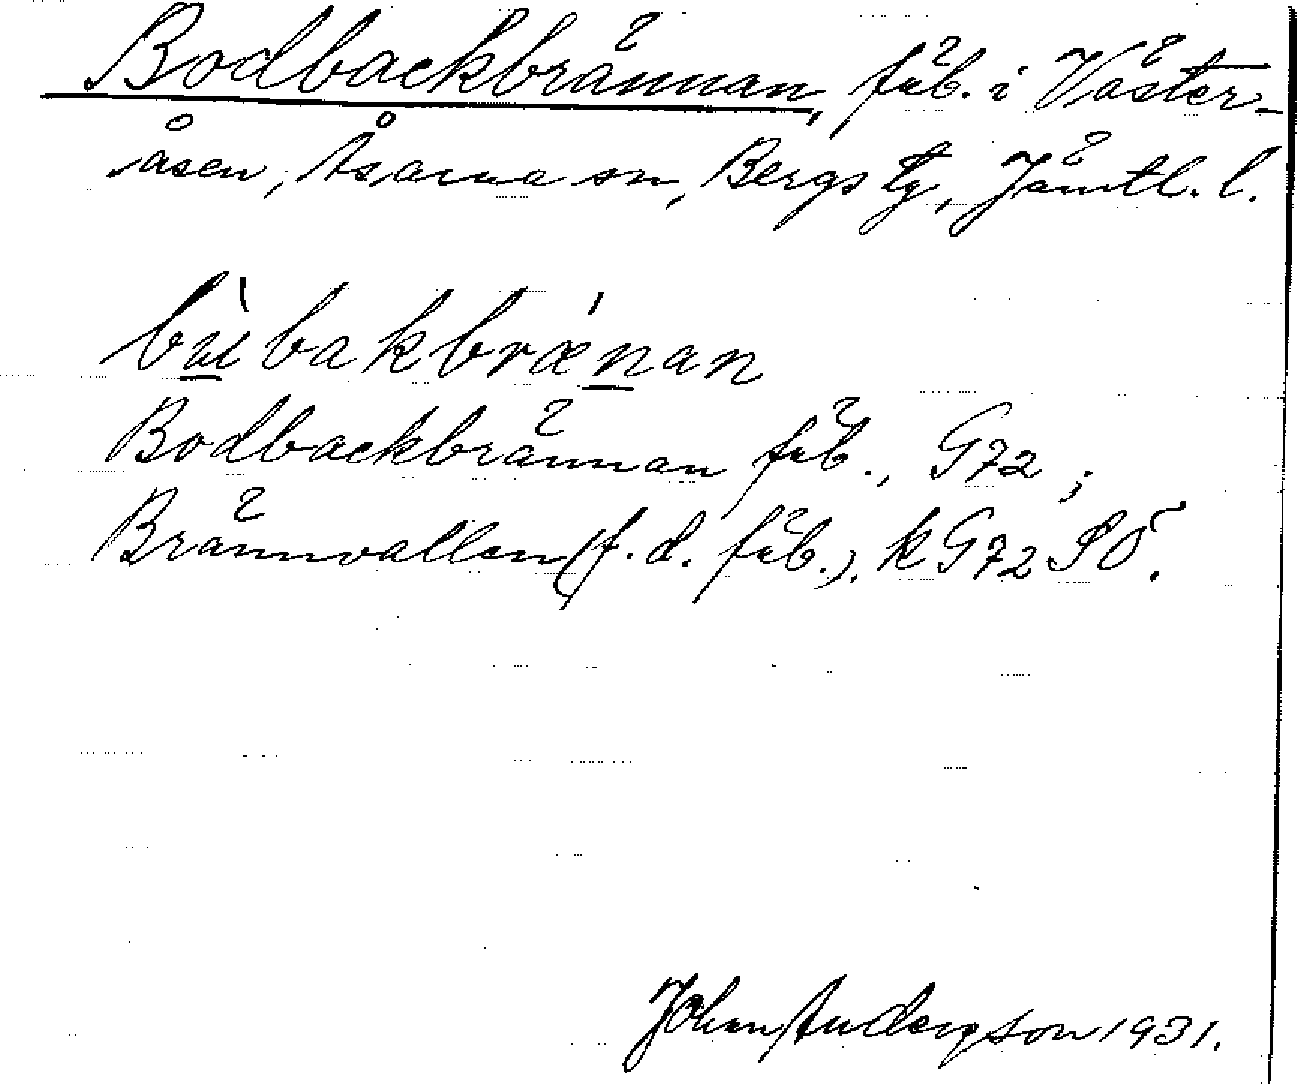 Bodbackbrännan, fäb. i Väster-
åsen, Åsarna sn, Bergs tg, Jämtl. l.
bù̲bakbræ´n̲an
Bodbackbrännan fäb., G72;
Brännvallen (f. d. fäb.), k G72 SÖ.
Johan Andersson 1931.